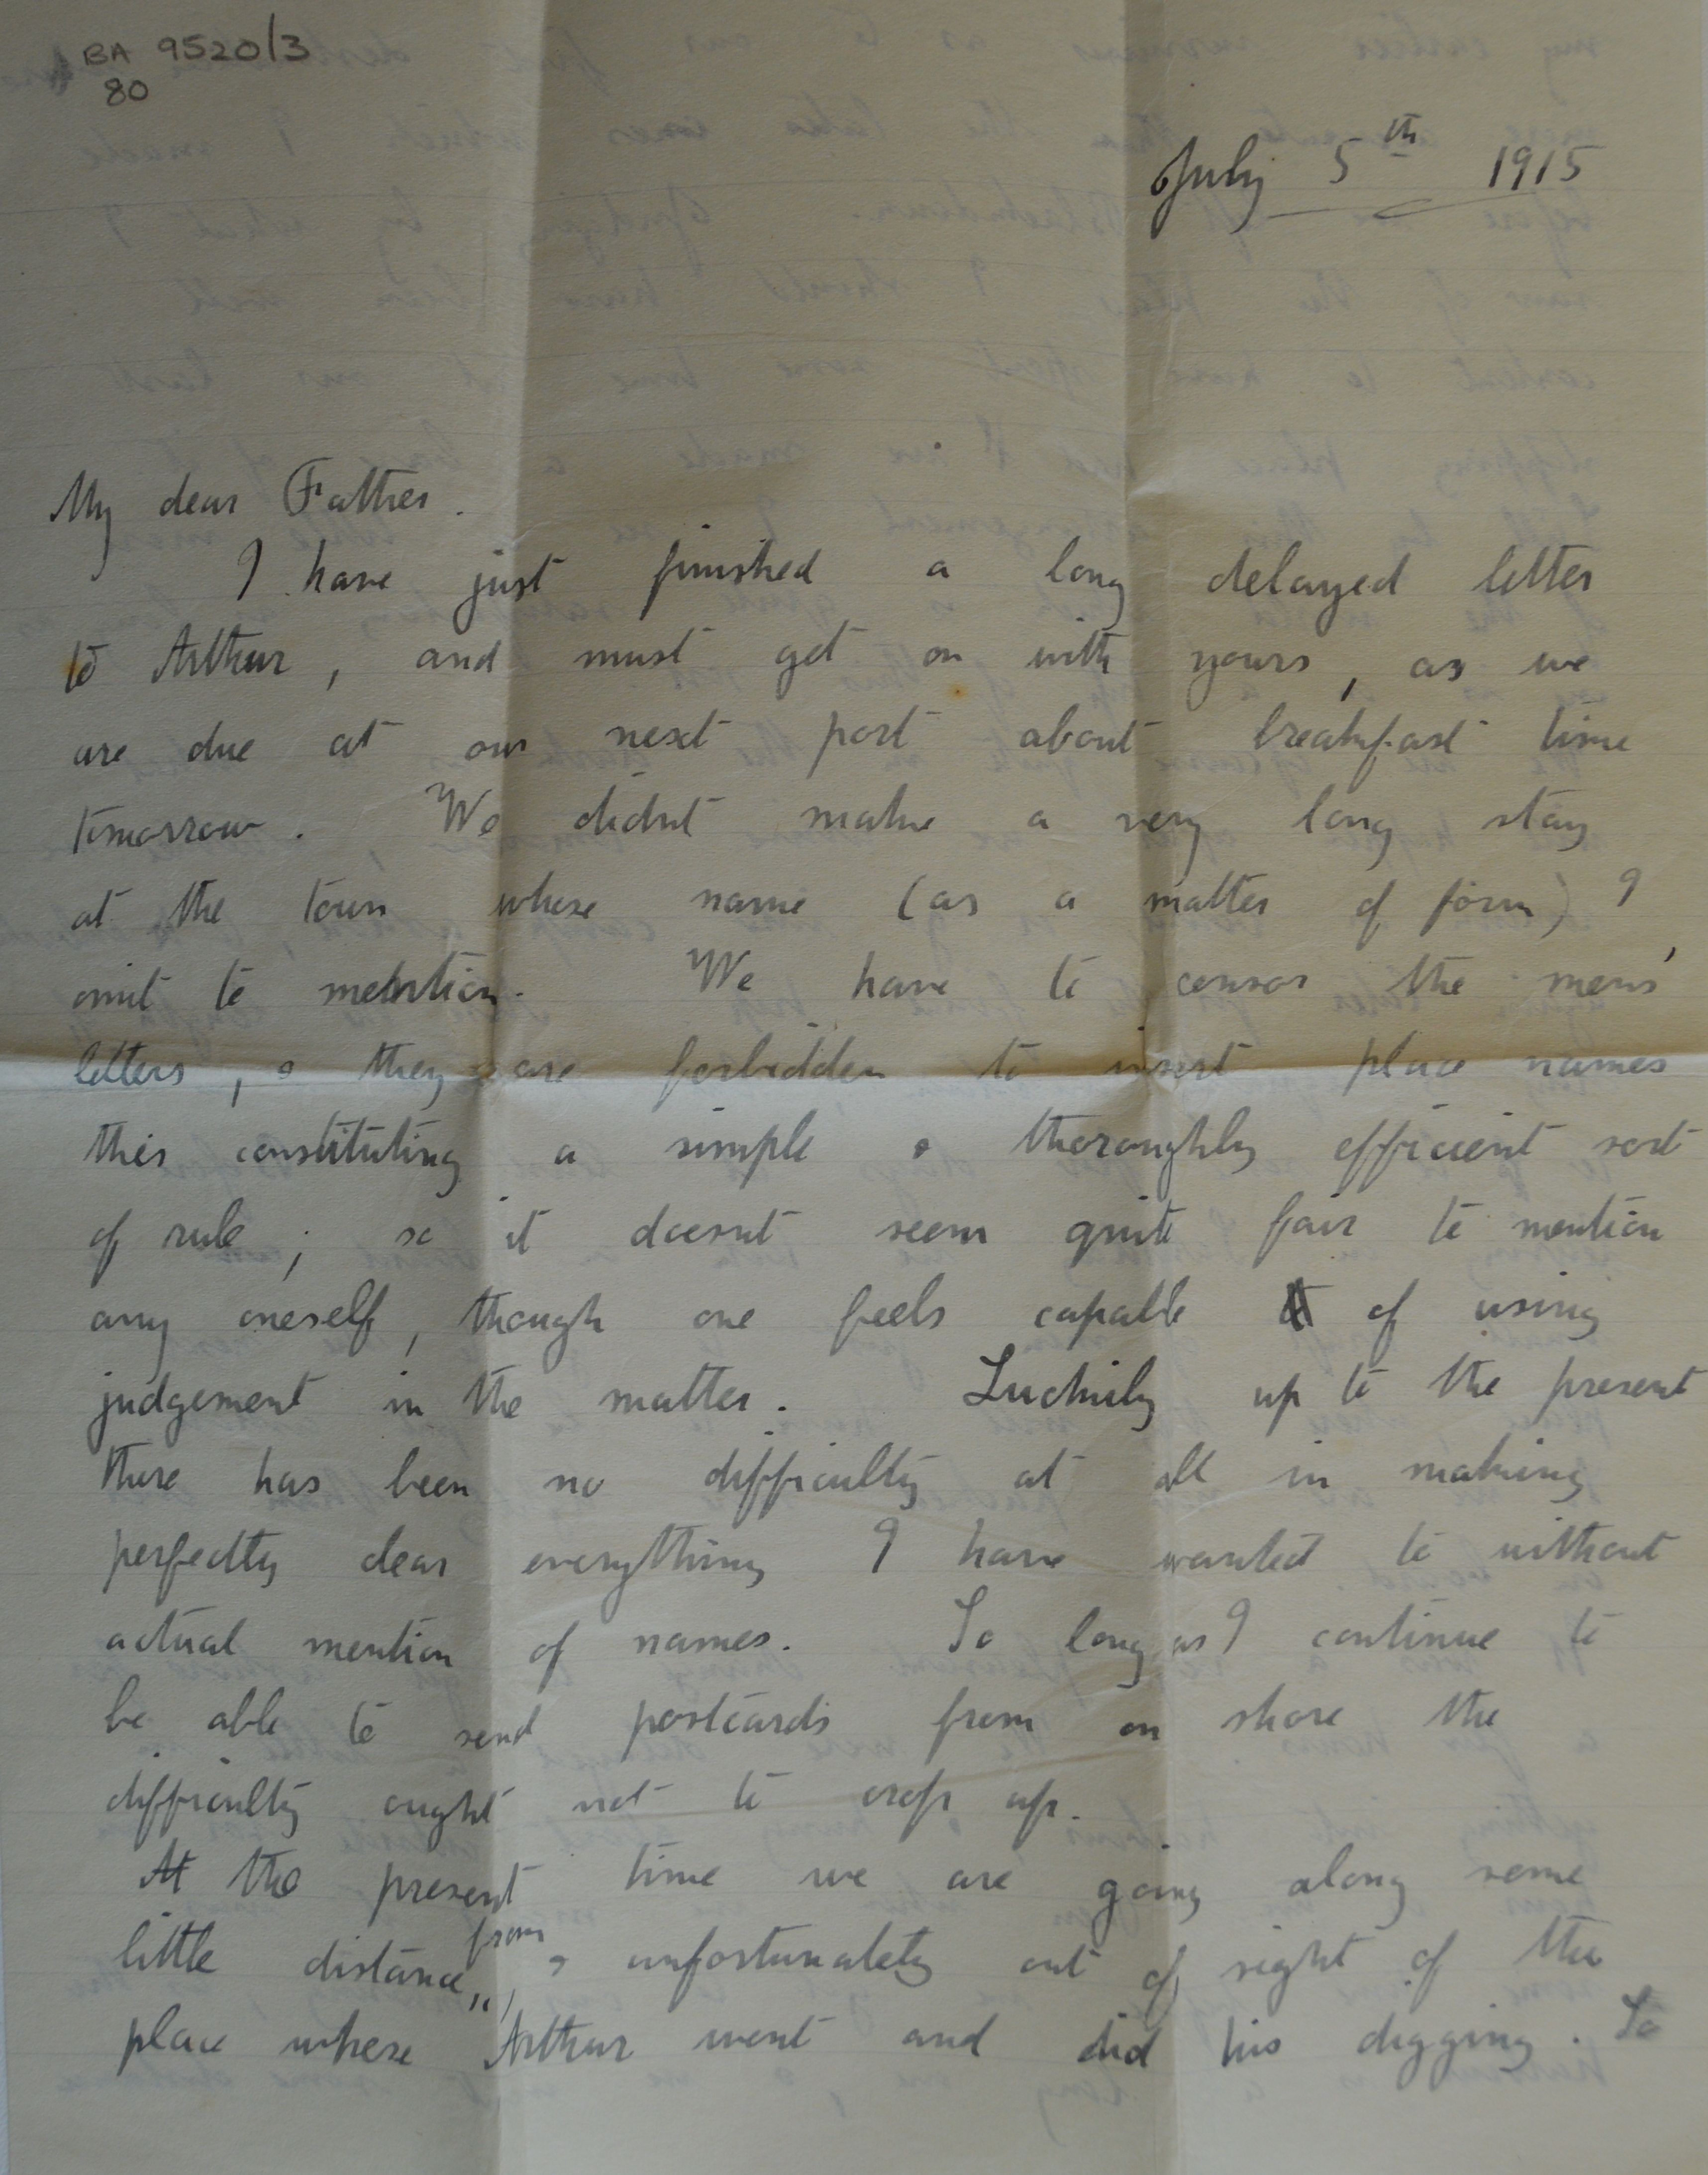 BA 9520/3
80
July 5th 1915
My dear Father.
I have just finished a long delayed letter
to Arthur, and must get on with yours, as we
are due at our next port about breakfast time
tomorrow. We didnt make a very long stay
at the town whose name (as a matter of form) I
omit to mention. We have to censor the mens'
letters, & they are forbidden to insert place names
this constituting a simple & thoroughly efficient sort
of rule; so it doesnt seem quite fair to mention
any oneself, though one feels capable of using
judgement in the matter. Luckily up to the present
there has been no difficulty at all in making
perfectly clear everything I have wanted to without
actual mention of names. So long as I continue to
be able to send postcards from on shore the
difficulty ought not to crop up.
At the present time we are going along some
little distance from, & unfortunately out of sight of the
place where Arthur went and did his digging. So